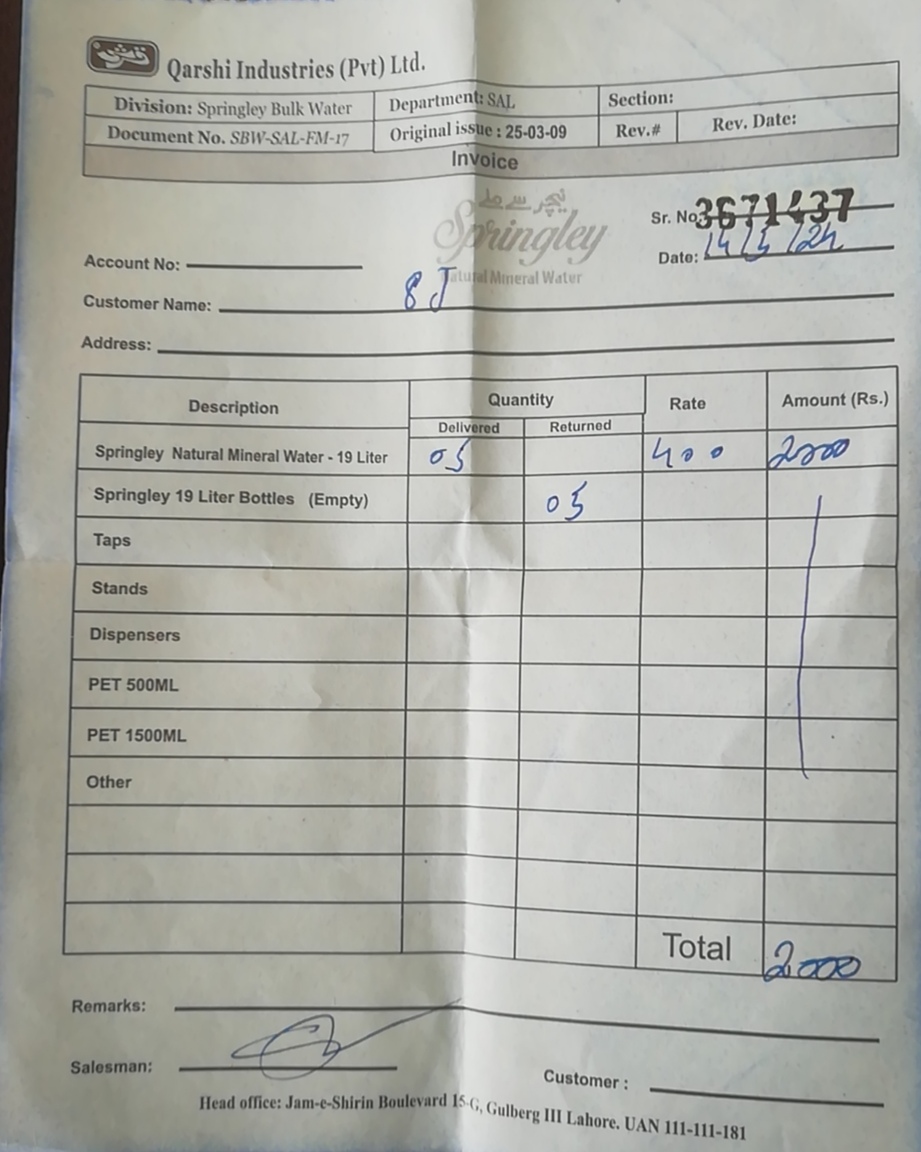 قرشی
Qarshi Industries (Pvt) Ltd.
Division: Springley Bulk Water Department: SAL Section:
Document No. SBW-SAL-FM-17 Original issue : 25-03-09 Rev.# Rev. Date:
Invoice
نیچر سے ملے
Springley
Natural Mineral Water
Sr. No. 3671437
Date: 14/5/24
Account No:
Customer Name: 8 J
Address:
Description Quantity Rate Amount (Rs.)
Delivered Returned
Springley Natural Mineral Water - 19 Liter 05 400 2000
Springley 19 Liter Bottles (Empty) 05
Taps
Stands
Dispensers
PET 500ML
PET 1500ML
Other
Total 2000
Remarks:
Salesman:
Customer :
Head office: Jam-e-Shirin Boulevard 15-G, Gulberg III Lahore. UAN 111-111-181